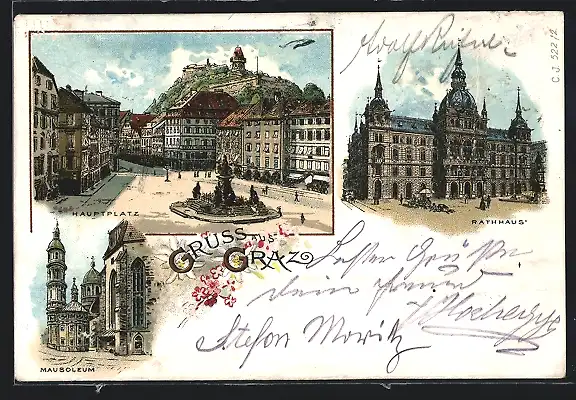 Adolf
C.J. 522/2
HAUPTPLATZ
RATHHAUS
GRUSS AUS GRAZ
MAUSOLEUM
Besten Grüße
dein Freund
Stefan Moritz